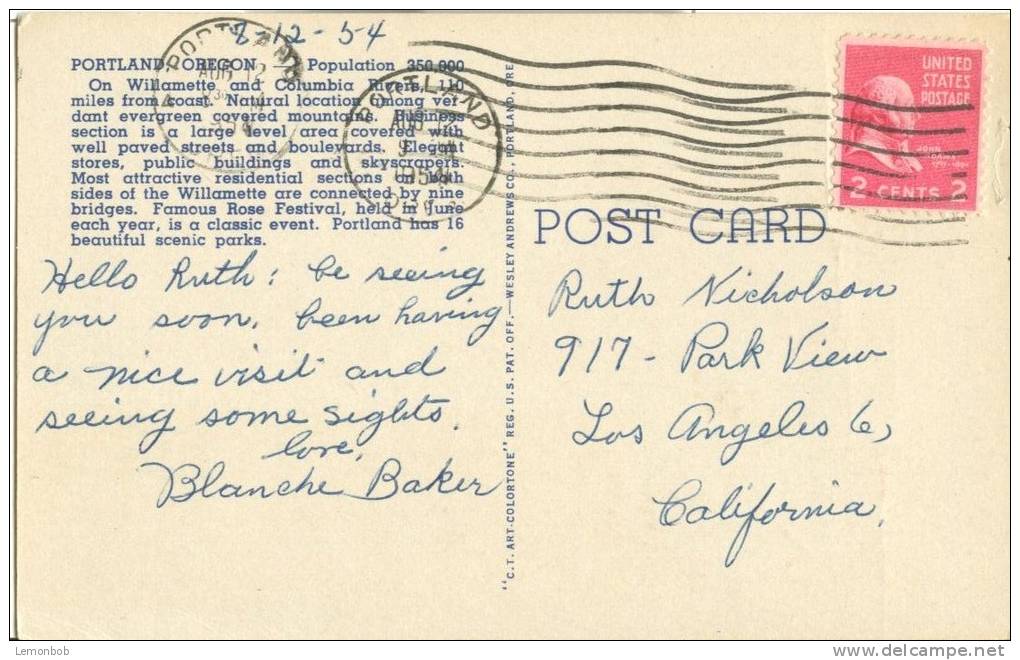 8-12-54
PORTLAND, OREGON Population 350,000
On Willamette and Columbia Rivers, 110
miles from coast. Natural location among ver-
dant evergreen covered mountains. Business
section is a large level area covered with
well paved streets and boulevards. Elegant
stores, public buildings and skyscrapers.
Most attractive residential sections on both
sides of the Willamette are connected by nine
bridges. Famous Rose Festival, held in June
each year, is a classic event. Portland has 16
beautiful scenic parks.
Hello Ruth: be seeing
you soon. been having
a nice visit and
seeing some sights.
love,
Blanche Baker
"C.T. ART-COLORTONE" REG. U.S. PAT. OFF.—WESLEY ANDREWS CO., PORTLAND, ORE.
PORTLAND
AUG 12
PORTLAND
AUG
1954
UNITED
STATES
POSTAGE
JOHN
ADAMS
2 CENTS 2
POST CARD
Ruth Nicholson
917- Park View
Los Angeles 6,
California.
Lemonbob
delcampe.net